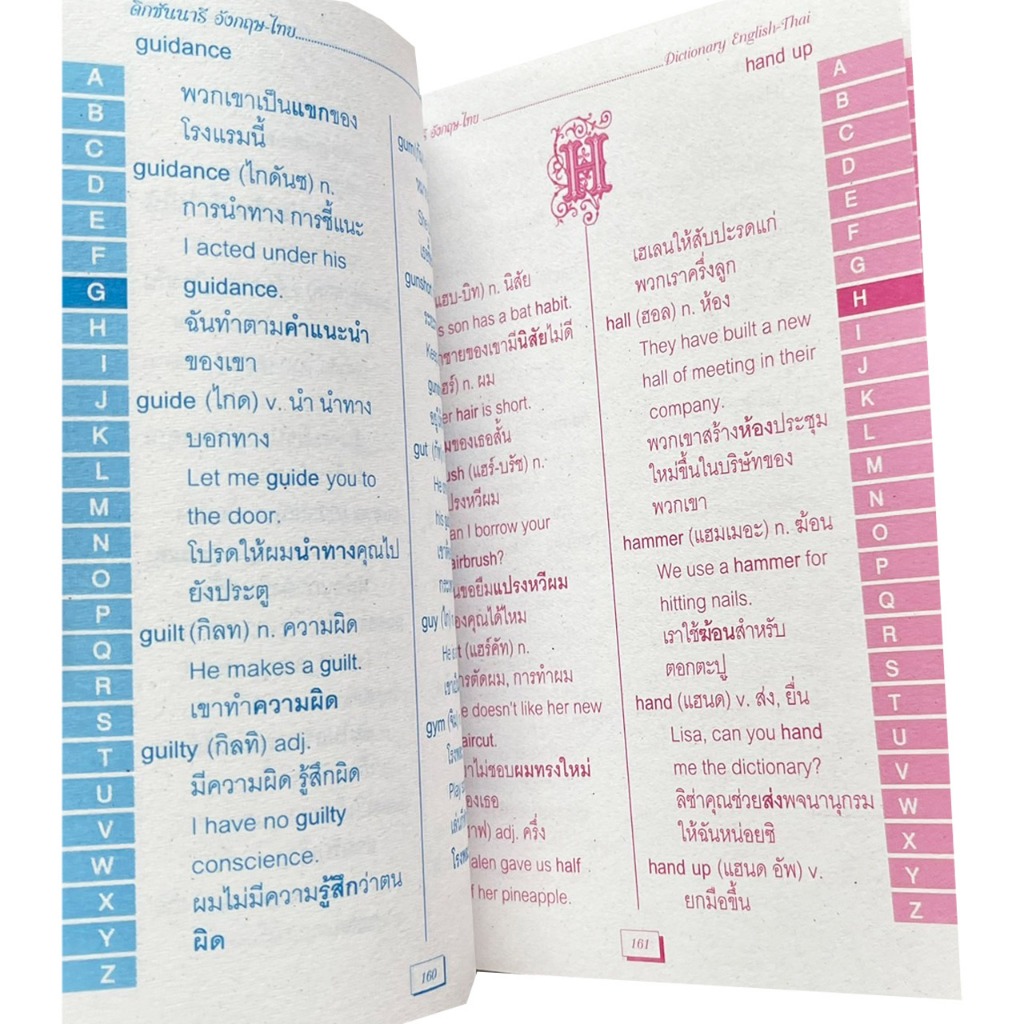 ดิกชันนารี อังกฤษ-ไทย
guidance
A
B
C
D
E
F
G
H
I
J
K
L
M
N
O
P
Q
R
S
T
U
V
W
X
Y
Z
พวกเขาเป็นแขกของ
โรงแรมนี้
guidance (ไกดันซ) n.
การนำทาง การชี้แนะ
I acted under his
guidance.
ฉันทำตามคำแนะนำ
ของเขา
guide (ไกด) v. นำ นำทาง
บอกทาง
Let me guide you to
the door.
โปรดให้ผมนำทางคุณไป
ยังประตู
guilt (กิลท) n. ความผิด
He makes a guilt.
เขาทำความผิด
guilty (กิลทิ) adj.
มีความผิด รู้สึกผิด
I have no guilty
conscience.
ผมไม่มีความรู้สึกว่าตน
ผิด
gum
gunshot
gut
guy
gym
160
อังกฤษ-ไทย
Dictionary English-Thai
hand up
H
(แฮบ-บิท) n. นิสัย
son has a bat habit.
ชายของเขามีนิสัยไม่ดี
n. ผม
hair is short.
ของเธอสั้น
(แฮร์-บรัช) n.
แปรงหวีผม
I borrow your
hairbrush?
ขอยืมแปรงหวีผม
ของคุณได้ไหม
(แฮร์คัท) n.
การตัดผม, การทำผม
doesn't like her new
haircut.
ไม่ชอบผมทรงใหม่
ของเธอ
adj. ครึ่ง
gave us half
her pineapple.
เฮเลนให้สับปะรดแก่
พวกเราครึ่งลูก
hall (ฮอล) n. ห้อง
They have built a new
hall of meeting in their
company.
พวกเขาสร้างห้องประชุม
ใหม่ขึ้นในบริษัทของ
พวกเขา
hammer (แฮมเมอะ) n. ฆ้อน
We use a hammer for
hitting nails.
เราใช้ฆ้อนสำหรับ
ตอกตะปู
hand (แฮนด) v. ส่ง, ยื่น
Lisa, can you hand
me the dictionary?
ลิซ่าคุณช่วยส่งพจนานุกรม
ให้ฉันหน่อยซิ
hand up (แฮนด อัพ) v.
ยกมือขึ้น
161
A
B
C
D
E
F
G
H
I
J
K
L
M
N
O
P
Q
R
S
T
U
V
W
X
Y
Z